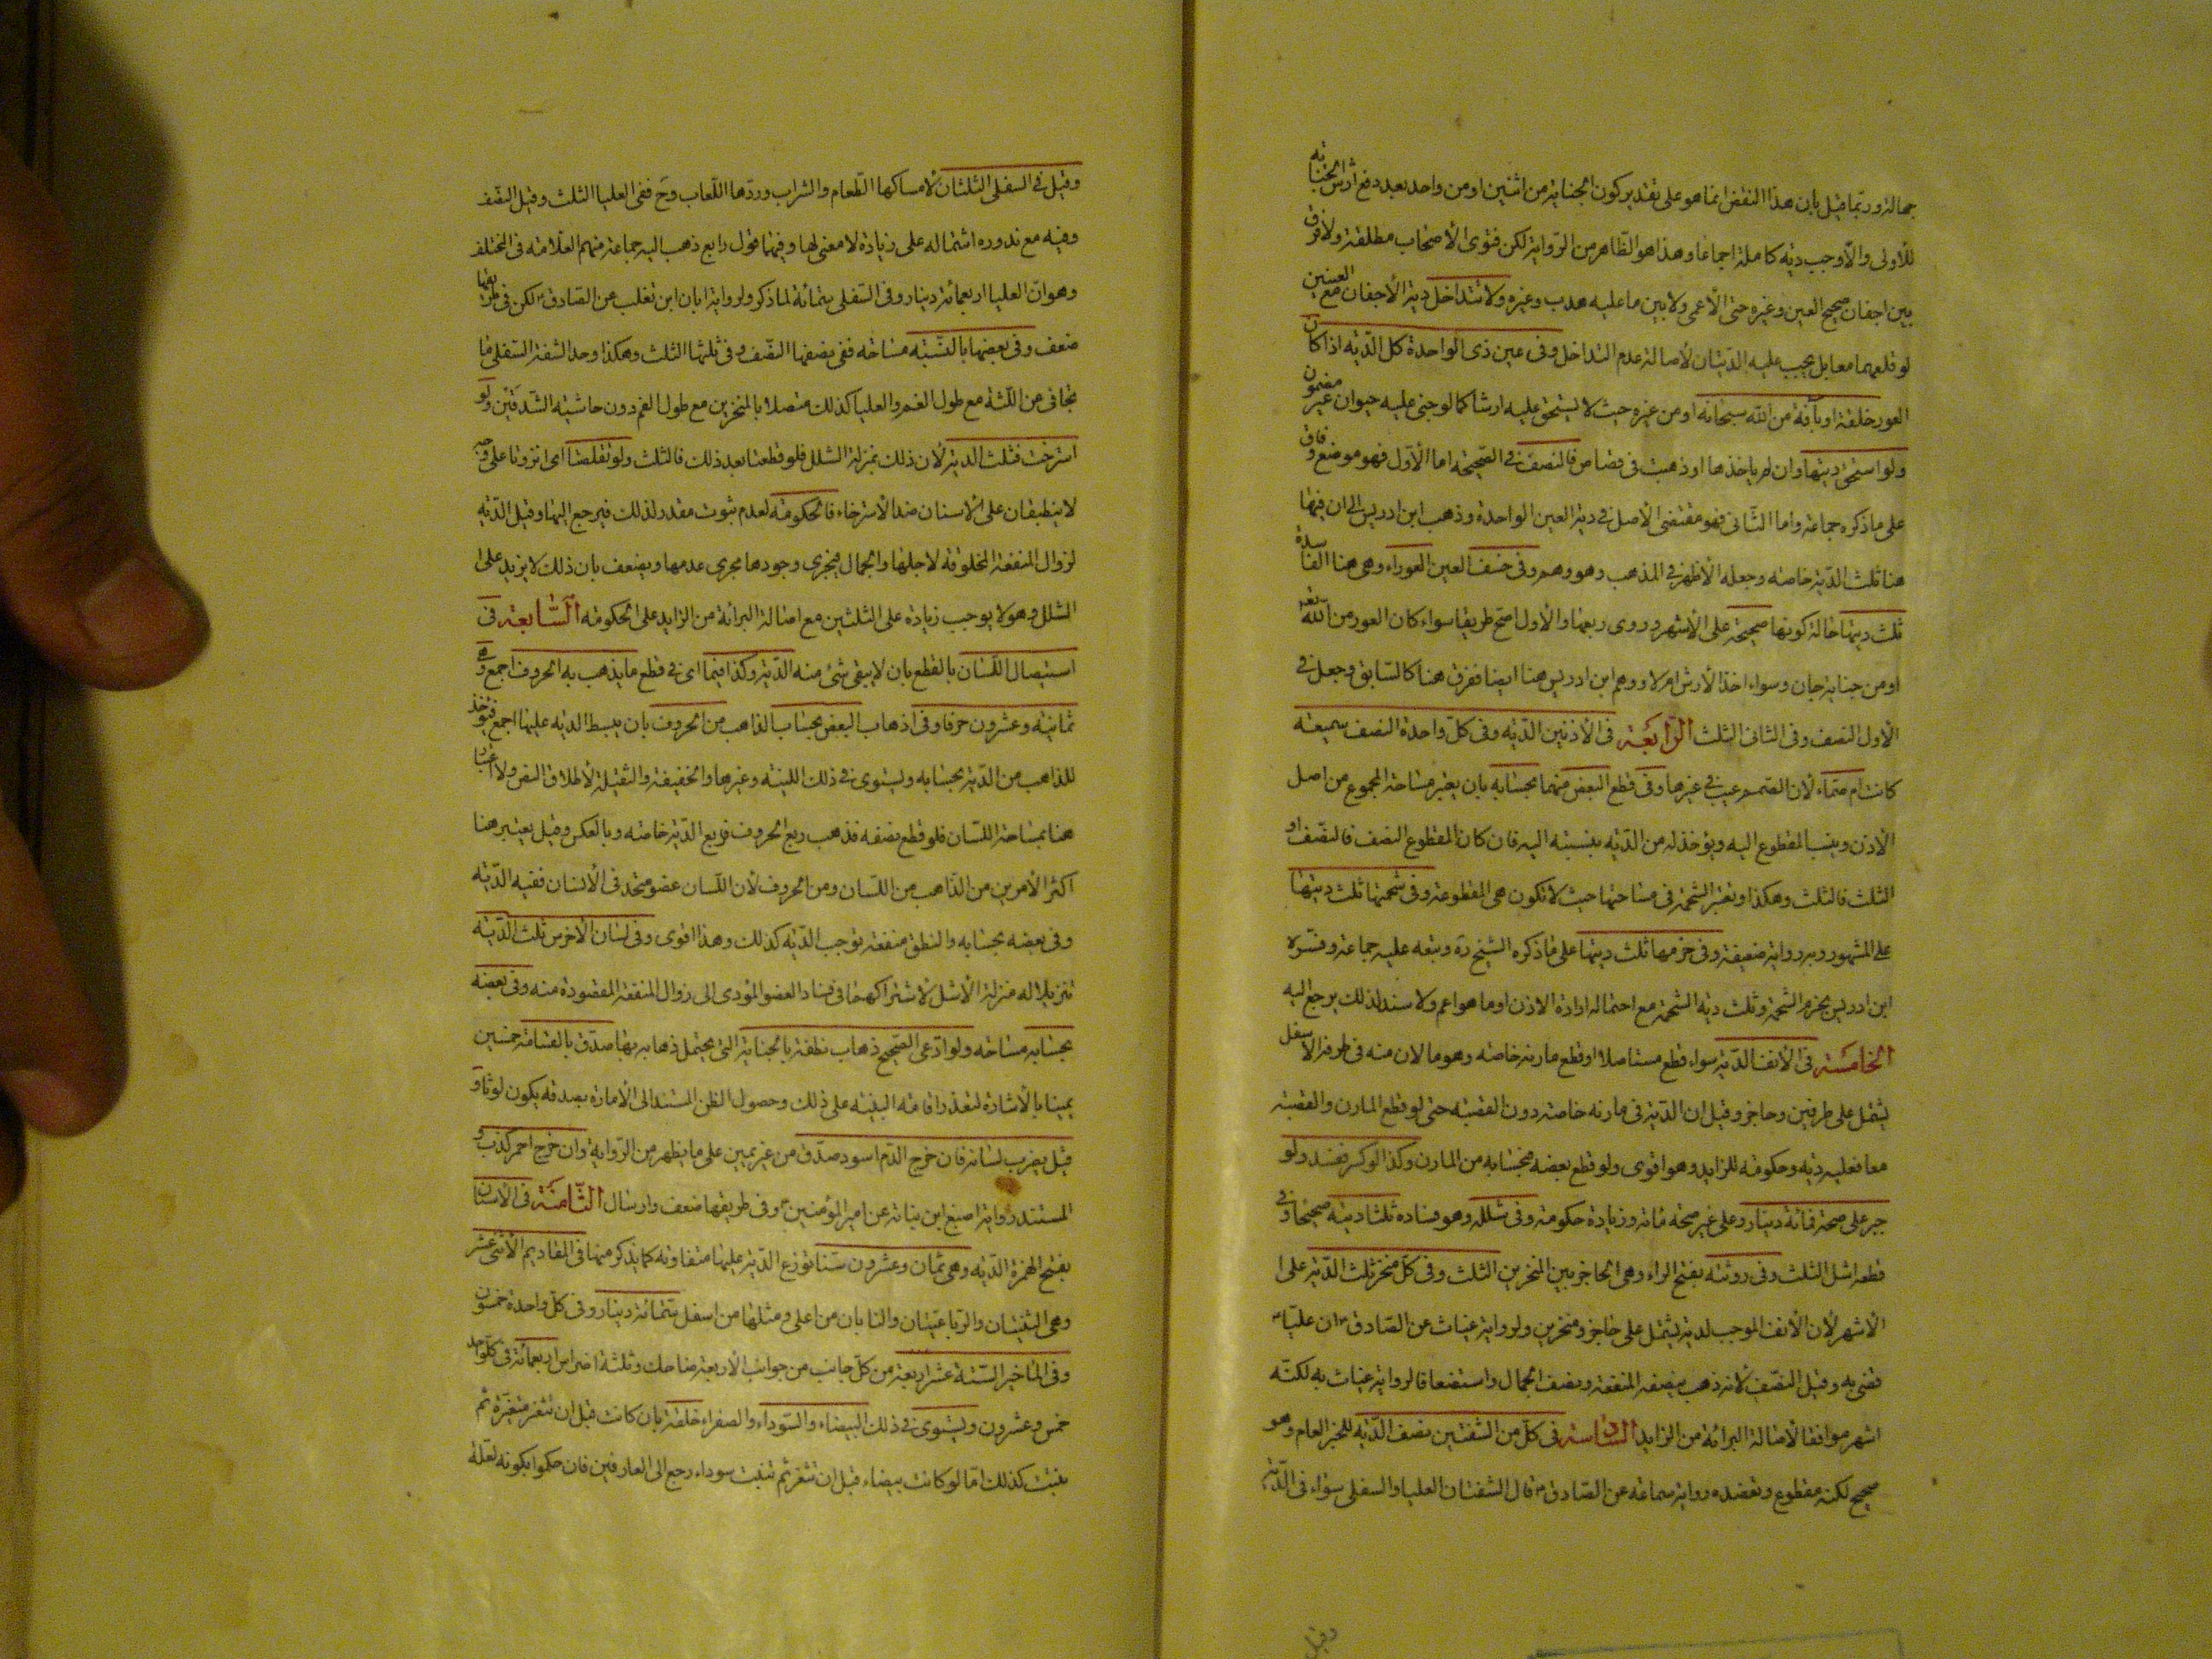 جهالة وربّما قيل بان هذا النقض انما هو على تقدير كون الجناية من اثنين او من واحد بعد دفع أرش الجناية
للأولى والّا وجب دية كاملة اجماعا وهذا هو الظّاهر من الرّواية لكن فتوى الأصحاب مطلقة ولا فرق
بين اجفان صحيح العين وغيره حتى الأعمى ولا بين ما عليه هدب وغيره ولا تتداخل دية الأجفان مع العينين
لو قلعهما معا بل يجب عليه الدّيتان لأصالة عدم التداخل وفى عين ذى الواحدة كل الدّيه اذا كان
العور خلقة او بآفة من الله سبحانه او من غيره حيث لا يستحق عليه ارشا كما لو جنى عليه حيوان غير مضمون
ولو استحق ديتها وان لم ياخذها او ذهبت فى قصاص فالنصف فى الصّحيحة اما الأوّل فهو موضع وفاق
على ما ذكره جماعة واما الثّانى فهو مقتضى الأصل فى دية العين الواحدة وذهب ابن ادريس الى ان فيها
هنا ثلث الدّية خاصه وجعله الأظهر فى المذهب وهو وهم وفى خسف العين العوراء وهى هنا الفاسدة
ثلث ديتها حالة كونها صحيحة على الأشهر وروى ربعها والأول اصح طريقا سواء كان العور من الله تعه
او من جناية جان وسواء اخذ الأرش ام لا ووهم ابن ادريس هنا ايضا ففرق هنا كالسّابق وجعل فى
الأول النصف وفى الثانى الثلث الرّابعة فى الأذنين الدّيه وفى كلّ واحدة النصف سميعه
كانت ام صمّاء لان الصّمم عيب فى غيرها وفى قطع البعض منهما بحسابه بان يعتبر مساحة المجموع من اصل
الاذن وينسب المقطوع اليه ويؤخذ له من الدّيه بنسبته اليه فان كان المقطوع النصف فالنصّف او
الثلث فالثلث وهكذا وتعتبر الشحمة فى مساحتها حيث لا تكون هى المقطوعة وفى شحمتها ثلث ديتها
على المشهور وبه رواية ضعيفة وفى خرمها ثلث ديتها على ما ذكره الشيخ ره وتبعه عليه جماعة وفسّره
ابن ادريس بخرم الشحمة وثلث دية الشحمة مع احتماله ارادة الاذن او ما هو اعم ولا سند لذلك يرجع اليه
الخامسة فى الأنف الدّية سواء قطع مستاصلا او قطع مارنه خاصه وهو ما لان منه فى طرفه الأسفل
يشتمل على طرفين وحاجز وقيل ان الدّية فى مارنه خاصة دون القصبة حتى لو قطع المارن والقصبة
معا فعليه ديه وحكومه للزايد وهو اقوى ولو قطع بعضه فبحسابه من المارن وكذا لو كسر ففسد ولو
جبر على صحة فمائة دينار وعلى غير صحّه مائة وزيادة حكومة وفى شلله وهو فساده ثلثا ديته صحيحا وفى
قطعه اشل الثلث وفى روثته بفتح الراء وهى الحاجز بين المنخرين الثلث وفى كلّ منخر ثلث الدّية على
الأشهر لأن الأنف الموجب لدية يشتمل على حاجز ومنخرين ولرواية غياث عن الصّادق ان عليّا
قضى به وقيل النصّف لانه ذهب بنصف المنفعة ونصف الجمال واستضعافا لرواية غياث به لكنّه
اشهر موافقا لأصالة البرائة من الزايد السّادسة فى كلّ من الشفتين نصف الدّيه للخبر العام وهو
صحيح لكنه مقطوع وتعضده رواية سماعه عن الصّادق قال الشفتان العليا والسفلى سواء فى الدّية
وقيل
وقيل فى السفلى الثلثان لامساكها الطّعام والشراب وردّها اللّعاب وح ففى العليا الثلث وقيل النصّف
وفيه مع ندوره اشتماله على زيادة لا معنى لها وفيهما قول رابع ذهب اليه جماعة منهم العلّامه فى المختلف
وهو ان العليا اربعمائة دينار وفى السّفلى ستمائة لما ذكر ولرواية ابان ابن تغلب عن الصّادق لكن فى طريقها
ضعف وفى بعضها بالنّسبة مساحه ففى نصفها النصّف وفى ثلثها الثلث وهكذا وحد الشفة السّفلى ما
تجافى عن اللّثة مع طول الفم والعليا كذلك متصلا بالمنخرين مع طول الفم دون حاشيه الشّدقين ولو
استرختا فثلث الدية لأن ذلك بمنزلة الشلل فلو قطعتا بعد ذلك فالثلث ولو تقلصتا اى انزوتا على وجه
لا ينطبقان على الاسنان ضد الأسترخاء فالحكومة لعدم ثبوت مقدر لذلك فيرجع اليها وقيل الدّيه
لزوال المنفعة المخلوقة لاجلها والجمال فيجرى وجودها مجرى عدمها ويضعف بان ذلك لا يزيد على
الشلل وهو لا يوجب زيادة على الثلثين مع اصالة البرائة من الزايد على الحكومه السّابعة فى
استيصال اللّسان بالقطع بان لا يبقى شئ منه الدّية وكذا فيما اى فى قطع ما يذهب به الحروف اجمع وهى
ثمانية وعشرون حرفا وفى اذهاب البعض بحساب الذاهب من الحروف بان يبسط الديه عليها اجمع فيؤخذ
للذاهب من الدّية بحسابه ويستوى فى ذلك اللينة وغيرها والخفيفة والثقيلة لأطلاق النص ولا اعتبار
هنا بمساحة اللسّان فلو قطع نصفه فذهب ربع الحروف فربع الدّية خاصه وبالعكس وقيل يعتبر هنا
اكثر الأمرين من الذّاهب من اللسّان ومن الحروف لأن اللّسان عضو متحد فى الأنسان ففيه الدّيه
وفى بعضه بحسابه والنطق منفعة توجب الدّيه كذلك وهذا اقوى وفى لسان الأخرس ثلث الدّية
تنزيلا له منزلة الأشل لاشتراكهما فى فساد العضو المؤدى الى زوال المنفعة المقصودة منه وفى بعضه
بحسابه مساحه ولو ادّعى الصّحيح ذهاب نطقه بالجناية التى يحتمل ذهابه بها صدّق بالقسامة خمسين
يمينا بالأشارة لتعذر اقامه البيّنه على ذلك وحصول الظن المستند الى الأمارة بصدقه فيكون لوثا و
قيل يضرب لسانه فان خرج الدّم اسود صدّق من غير يمين على ما يظهر من الرّواية وان خرج احمر كذب و
المستند رواية اصبغ ابن نباتة عن امير المؤمنين وفى طريقها ضعف وارسال الثّامنة فى الأسنان
بفتح الهمزة الدّيه وهى ثمان وعشرون سنّا توزع الدّية عليها متفاوته كما يذكر منها فى المقاديم الأثنى عشر
وهى الثنيتان والرّباعيّتان والنابان من اعلى ومثلها من اسفل ستّمائة دينار وفى كلّ واحدة خمسون
وفى المآخير السّتة عشر اربعة من كلّ جانب من جوانب الأربعة ضاحك وثلثة اضراس اربعمائة فى كلّ واحد
خمس وعشرون ويستوى فى ذلك البيضاء والسّوداء والصفراء خلقة بان كانت قبل ان تثغر متغيّرة ثم
نبتت كذلك امّا لو كانت بيضاء قبل ان تثغر ثم تنبت سوداء رجع الى العارفين فان حكموا بكونه لعلة